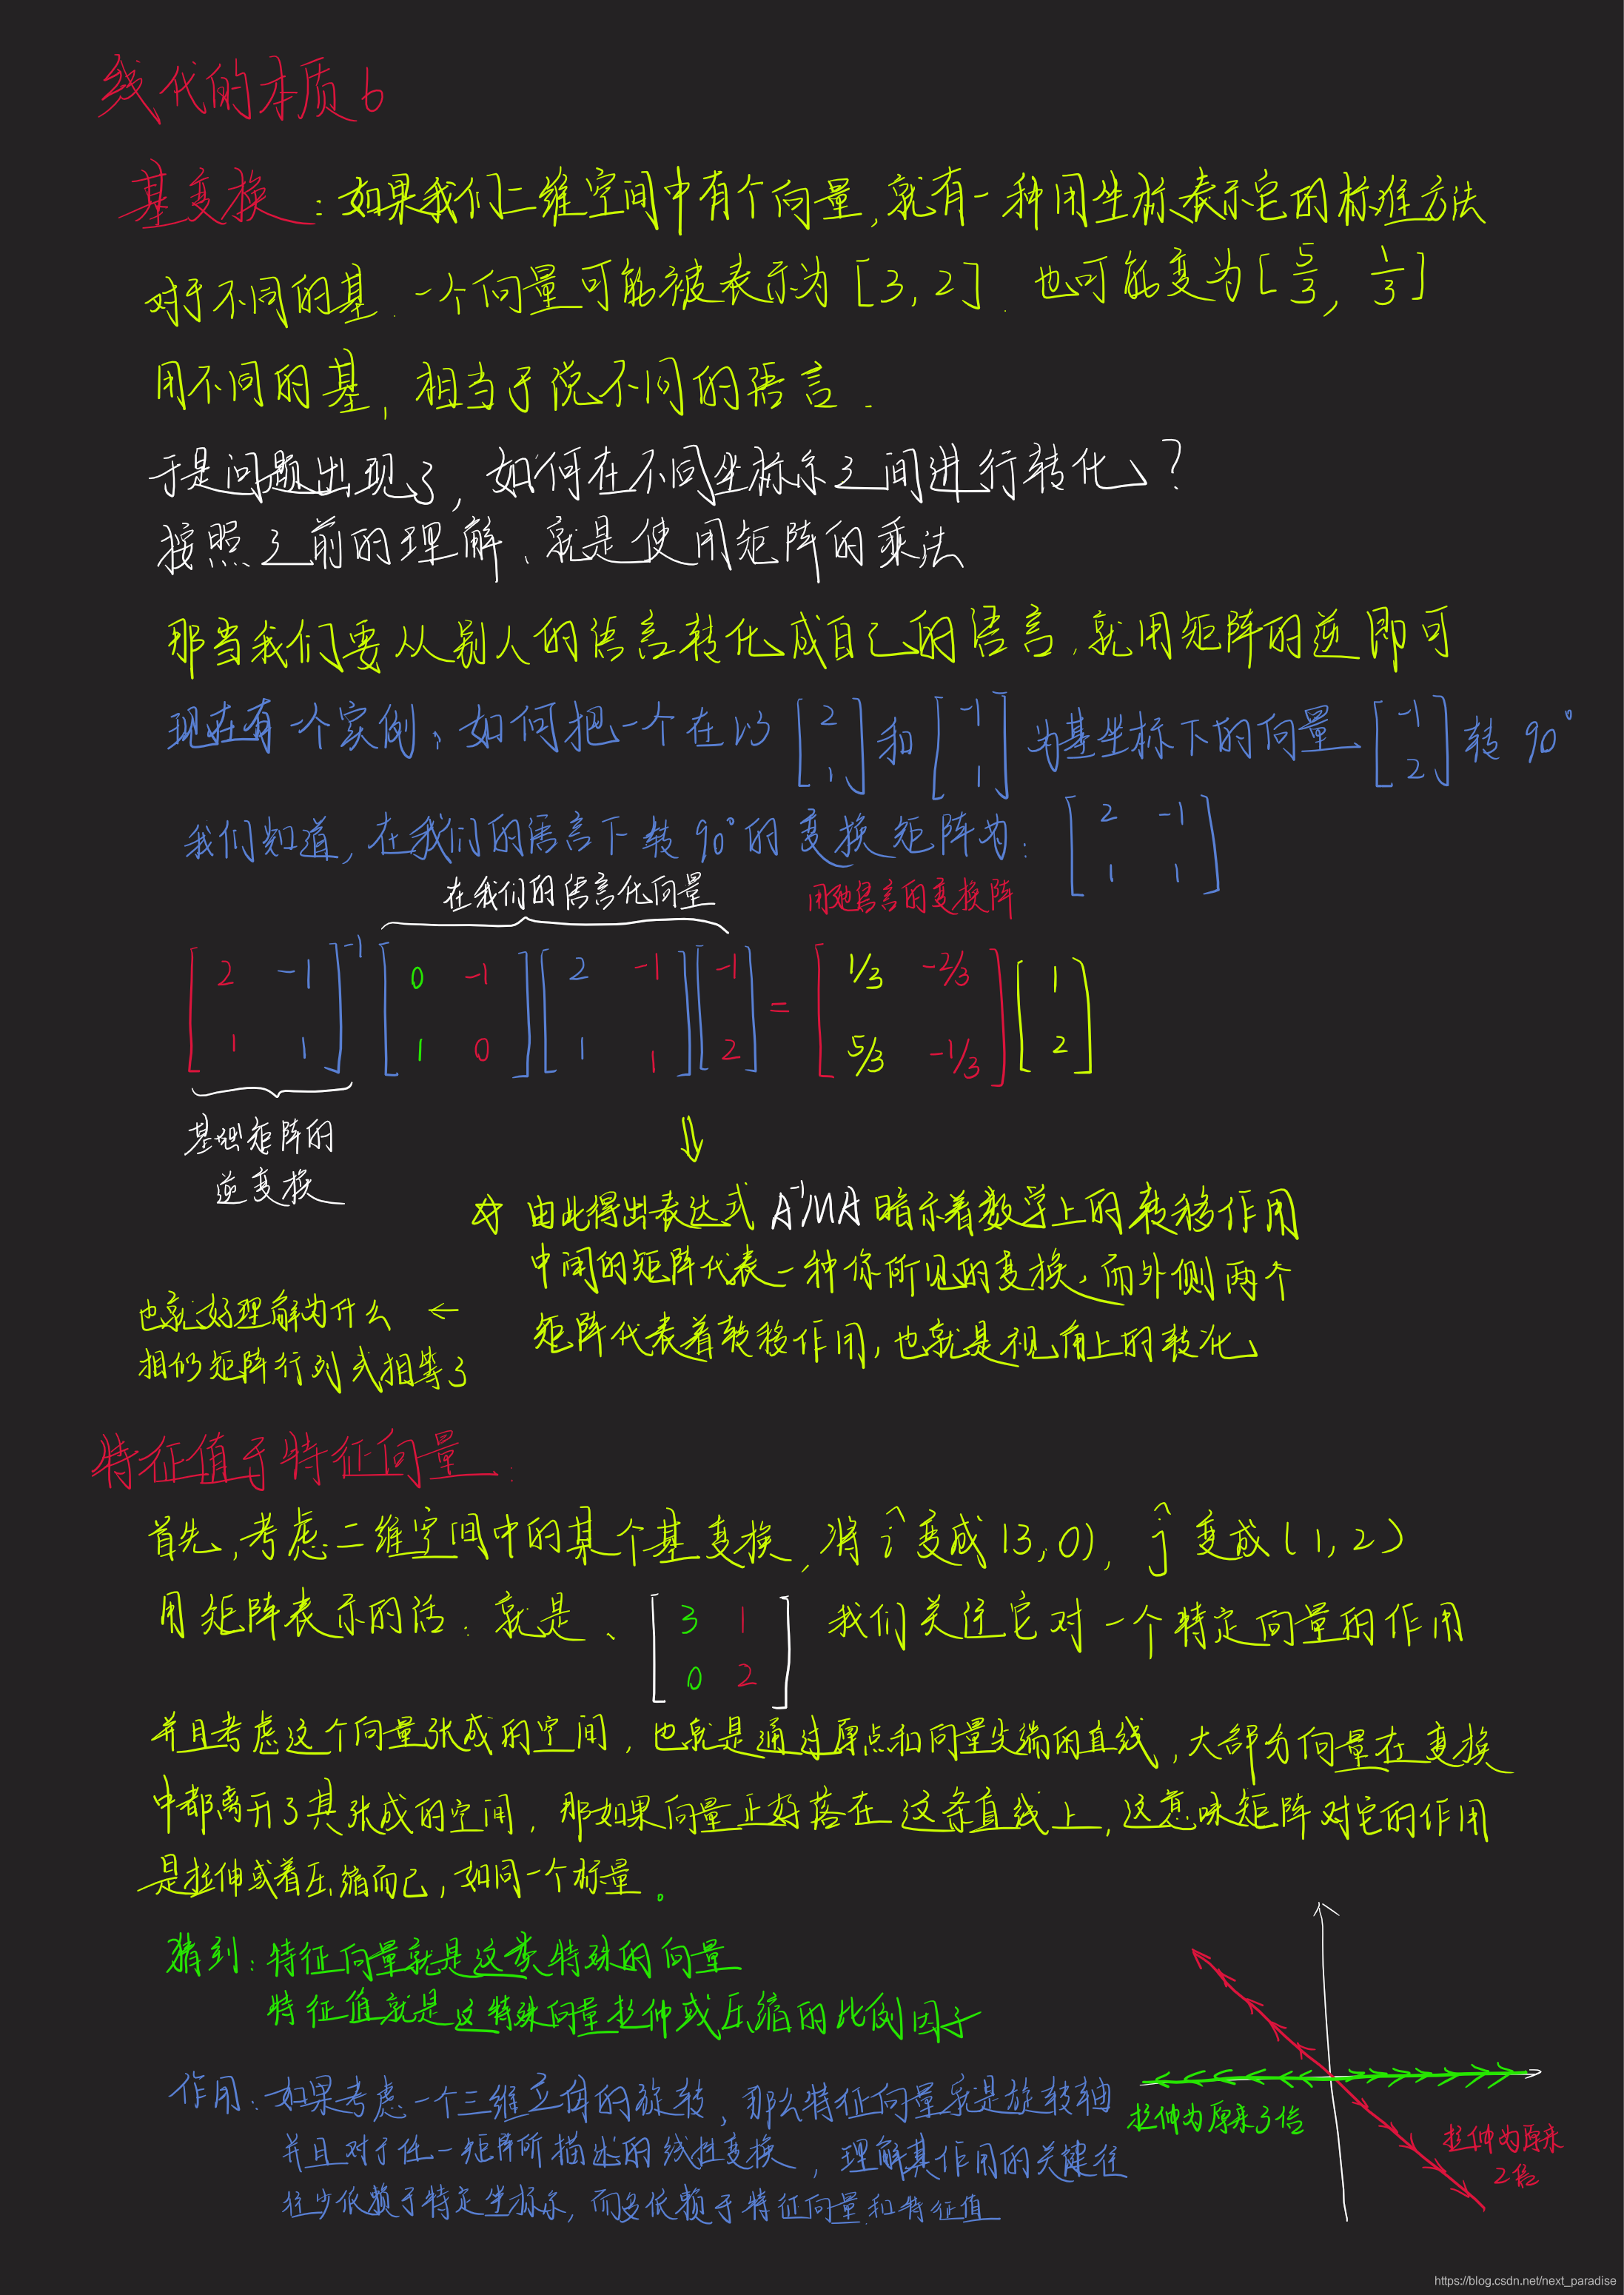 线代的本质6
基变换：如果我们二维空间中有个向量,就有一种用坐标表示它的标准方法
对于不同的基.一个向量可能被表示为[3,2].也可能变为[5/3, 1/3]
用不同的基,相当于说不同的语言.
于是问题出现了,如何在不同坐标系之间进行转化?
按照之前的理解、就是使用矩阵的乘法
那当我们要从别人的语言转化成自己的语言,就用矩阵的逆即可
现在有一个实例、如何把一个在以[2 1]和[-1 1]为基坐标下的向量[-1 2]转90°
我们知道,在我们的语言下转90°的变换矩阵为:[2 -1 1 1]
在我们的语言化向量 用她语言的变换阵
[2 -1 1 1]^-1 [0 -1 1 0][2 -1 1 1][-1 2] = [1/3 -2/3 5/3 -1/3][1 2]
⇓
基础矩阵的
逆变换
☆ 由此得出表达式 A^-1MA 暗示着数学上的转移作用
中间的矩阵代表一种你所见的变换,而外侧两个
矩阵代表着转移作用,也就是视角上的转化
也就好理解为什么 ←
相似矩阵行列式相等了
特征值于特征向量:
首先,考虑二维空间中的某个基变换,将î变成(3,0),ĵ变成(1,2)
用矩阵表示的话.就是、[3 1 0 2] 我们关注它对一个特定向量的作用
并且考虑这个向量张成的空间,也就是通过原点和向量尖端的直线,大部分向量在变换
中都离开了其张成的空间,那如果向量正好落在这条直线上,这意味矩阵对它的作用
是拉伸或着压缩而已,如同一个标量。
猜到:特征向量就是这类特殊的向量
特征值就是这特殊向量拉伸或压缩的比例因子
作用:如果考虑一个三维立体的旋转,那么特征向量就是旋转轴
并且对于任一矩阵所描述的线性变换,理解其作用的关键往
往少依赖于特定坐标系,而多依赖于特征向量和特征值
拉伸为原来3倍
拉伸为原来
2倍
https://blog.csdn.net/next_paradise